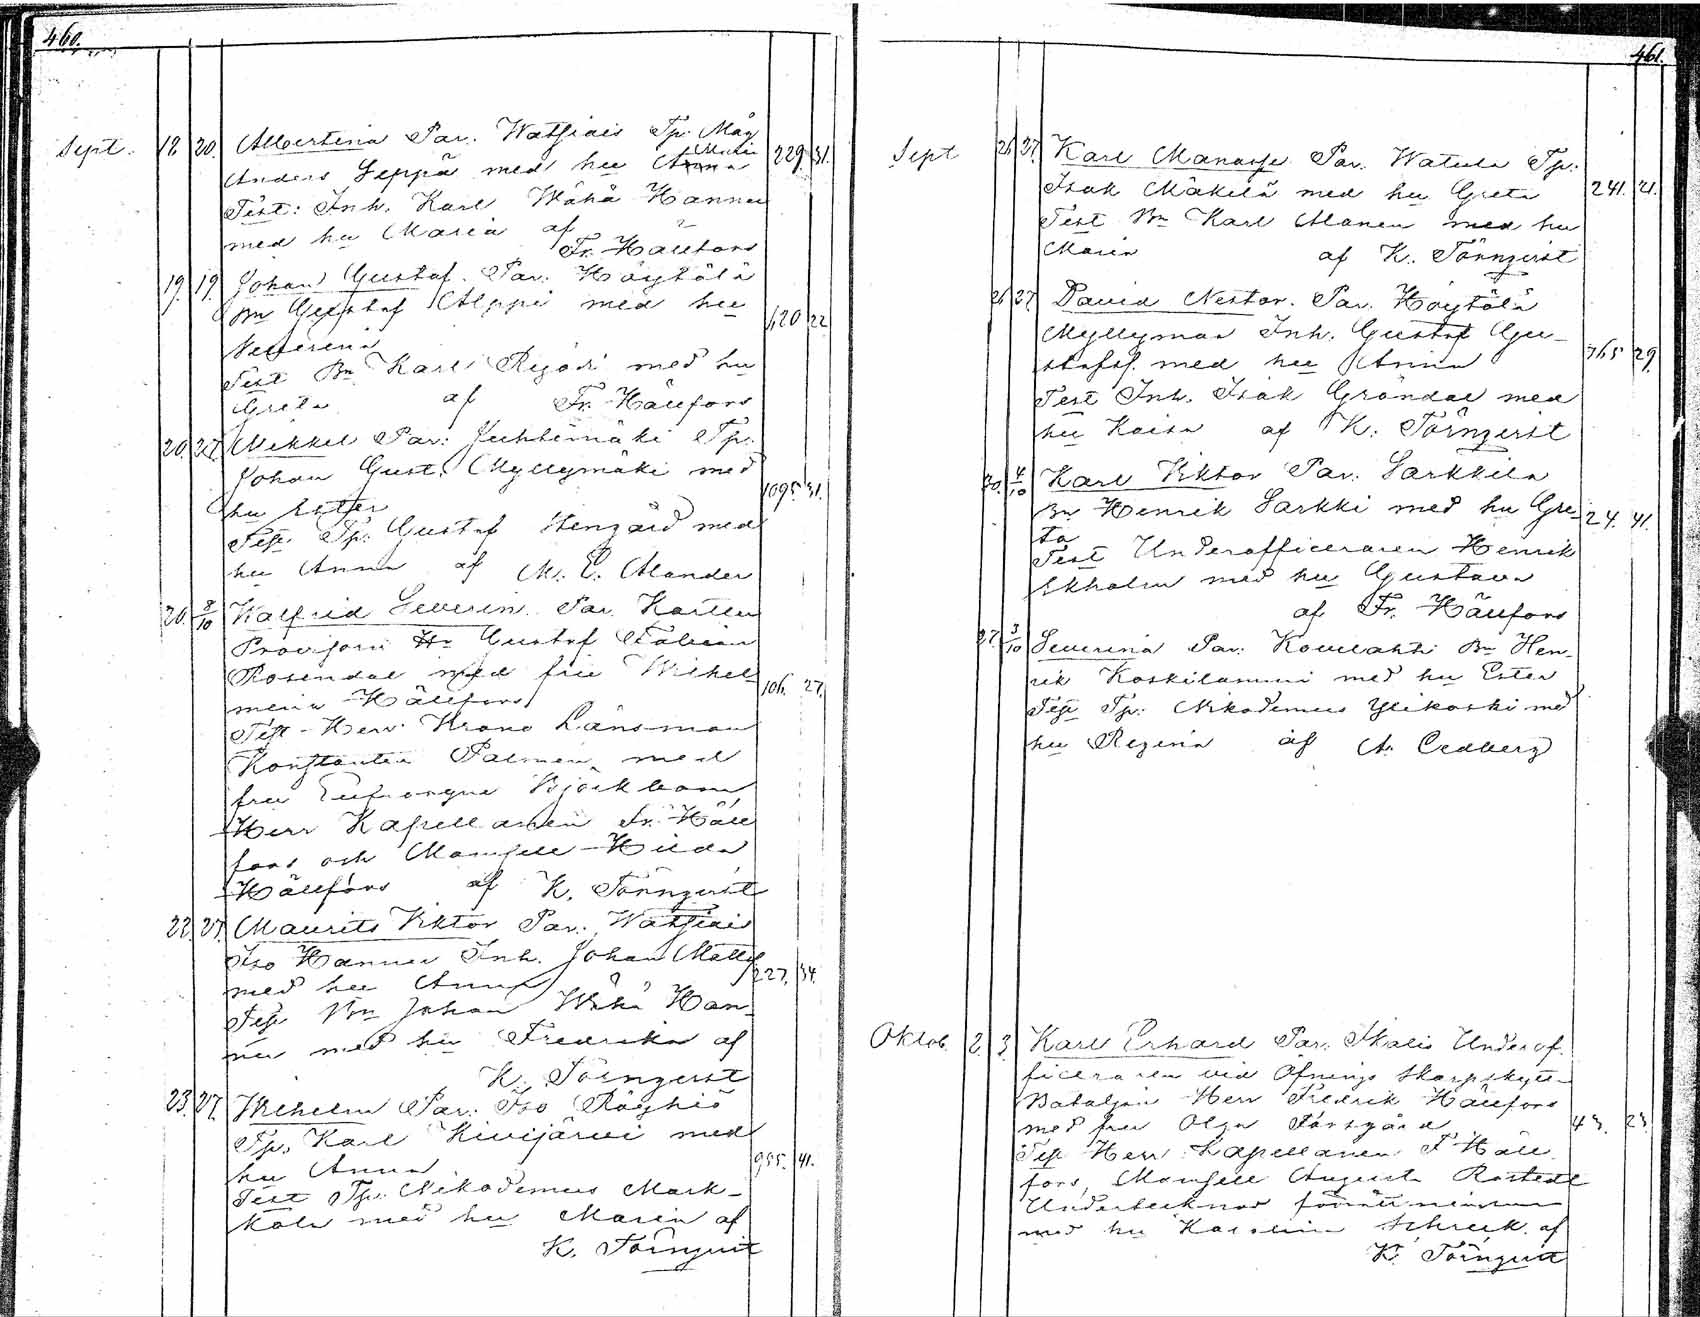 460.
Sept. 12. 20. Albertina Par. Watsiais Tp. Måg
Maria
Anders Seppä med hu Anna 229. 31.
Test: Inh. Karl Wähä Hannu
med hu Maria af
Fr. Hällfors
19. 19. Johan Gustaf. Par. Höytölä
Bn Gustaf Aleppi med hu 620 22
Severina
Test Bn Karl med hu
Greta af Fr. Hällfors
20. 27. Mikkel Par: Juhtimäki Tp.
Johan Gust. Myllymäki med
hu Ester 1095 31.
Test Tp. Gustaf Stengård med
hu Anna af M. E. Alander
20. 8/10 Walfrid Severin. Par. Karttu
Provisorn Hr Gustaf Fabian
Rosendal med fru Wilhel-
mina Hällfors 106. 27.
Test Herr Krono Länsman
Konstantin Palmén med
fru Eufrosyne Björkbom,
Herr Kapellanen Fr. Häll
fors och Mamsell Hilda
Hällfors af K. Törnqvist
22. 27. Maurits Viktor Par. Watsiais
Iso Hannu Inh. Johan Matts
med hu Anna 227. 34.
Test Bn Johan Wähä Han-
nu med hu Fredrika af
K. Törnqvist
23. 27. Wilhelm Par: Iso Röyhiö
Tp. Karl Kivijärvi med
hu Anna 955. 41.
Test Tp. Nikodemus Mark-
kola med hu Maria af
K. Törnqvist
461.
Sept 26 27. Karl Manasse Par. Watula Tp.
Isak Mäkilä med hu Greta 241. 21.
Test Bn Karl Alanen med hu
Maria af K. Törnqvist
26 27. David Nestor. Par. Höytölä
Myllymaa Inh. Gustaf Gu-
stafss. med hu Anna 765 29.
Test Inh. Isak Gröndal med
hu Kaisa af K. Törnqvist
30. 4/10 Karl Viktor Par. Sarkkila
Bn Henrik Sarkki med hu Gre- 24. 41.
ta
Test Underofficeraren Henrik
Ekholm med hu Gustava
af Fr. Hällfors
27. 3/10 Severina Par: Kovelahti Bn Hen-
rik Koskilammi med hu Ester
Test Tp. Nikodemus Ylikoski med
hu Regina af A. Cedberg
Oktob. 2. 3. Karl Erhard Par. Ikalis Underof-
ficeraren vid Öfnings Skarpskytte-
Bataljon Herr Fredrik Hällfors
med fru Olga Forsgård 43. 23.
Test Herr Kapellanen F Häll
fors, Mamsell Augusta Rostedt
med hu Karolina Schreck. af
K. Törnqvist